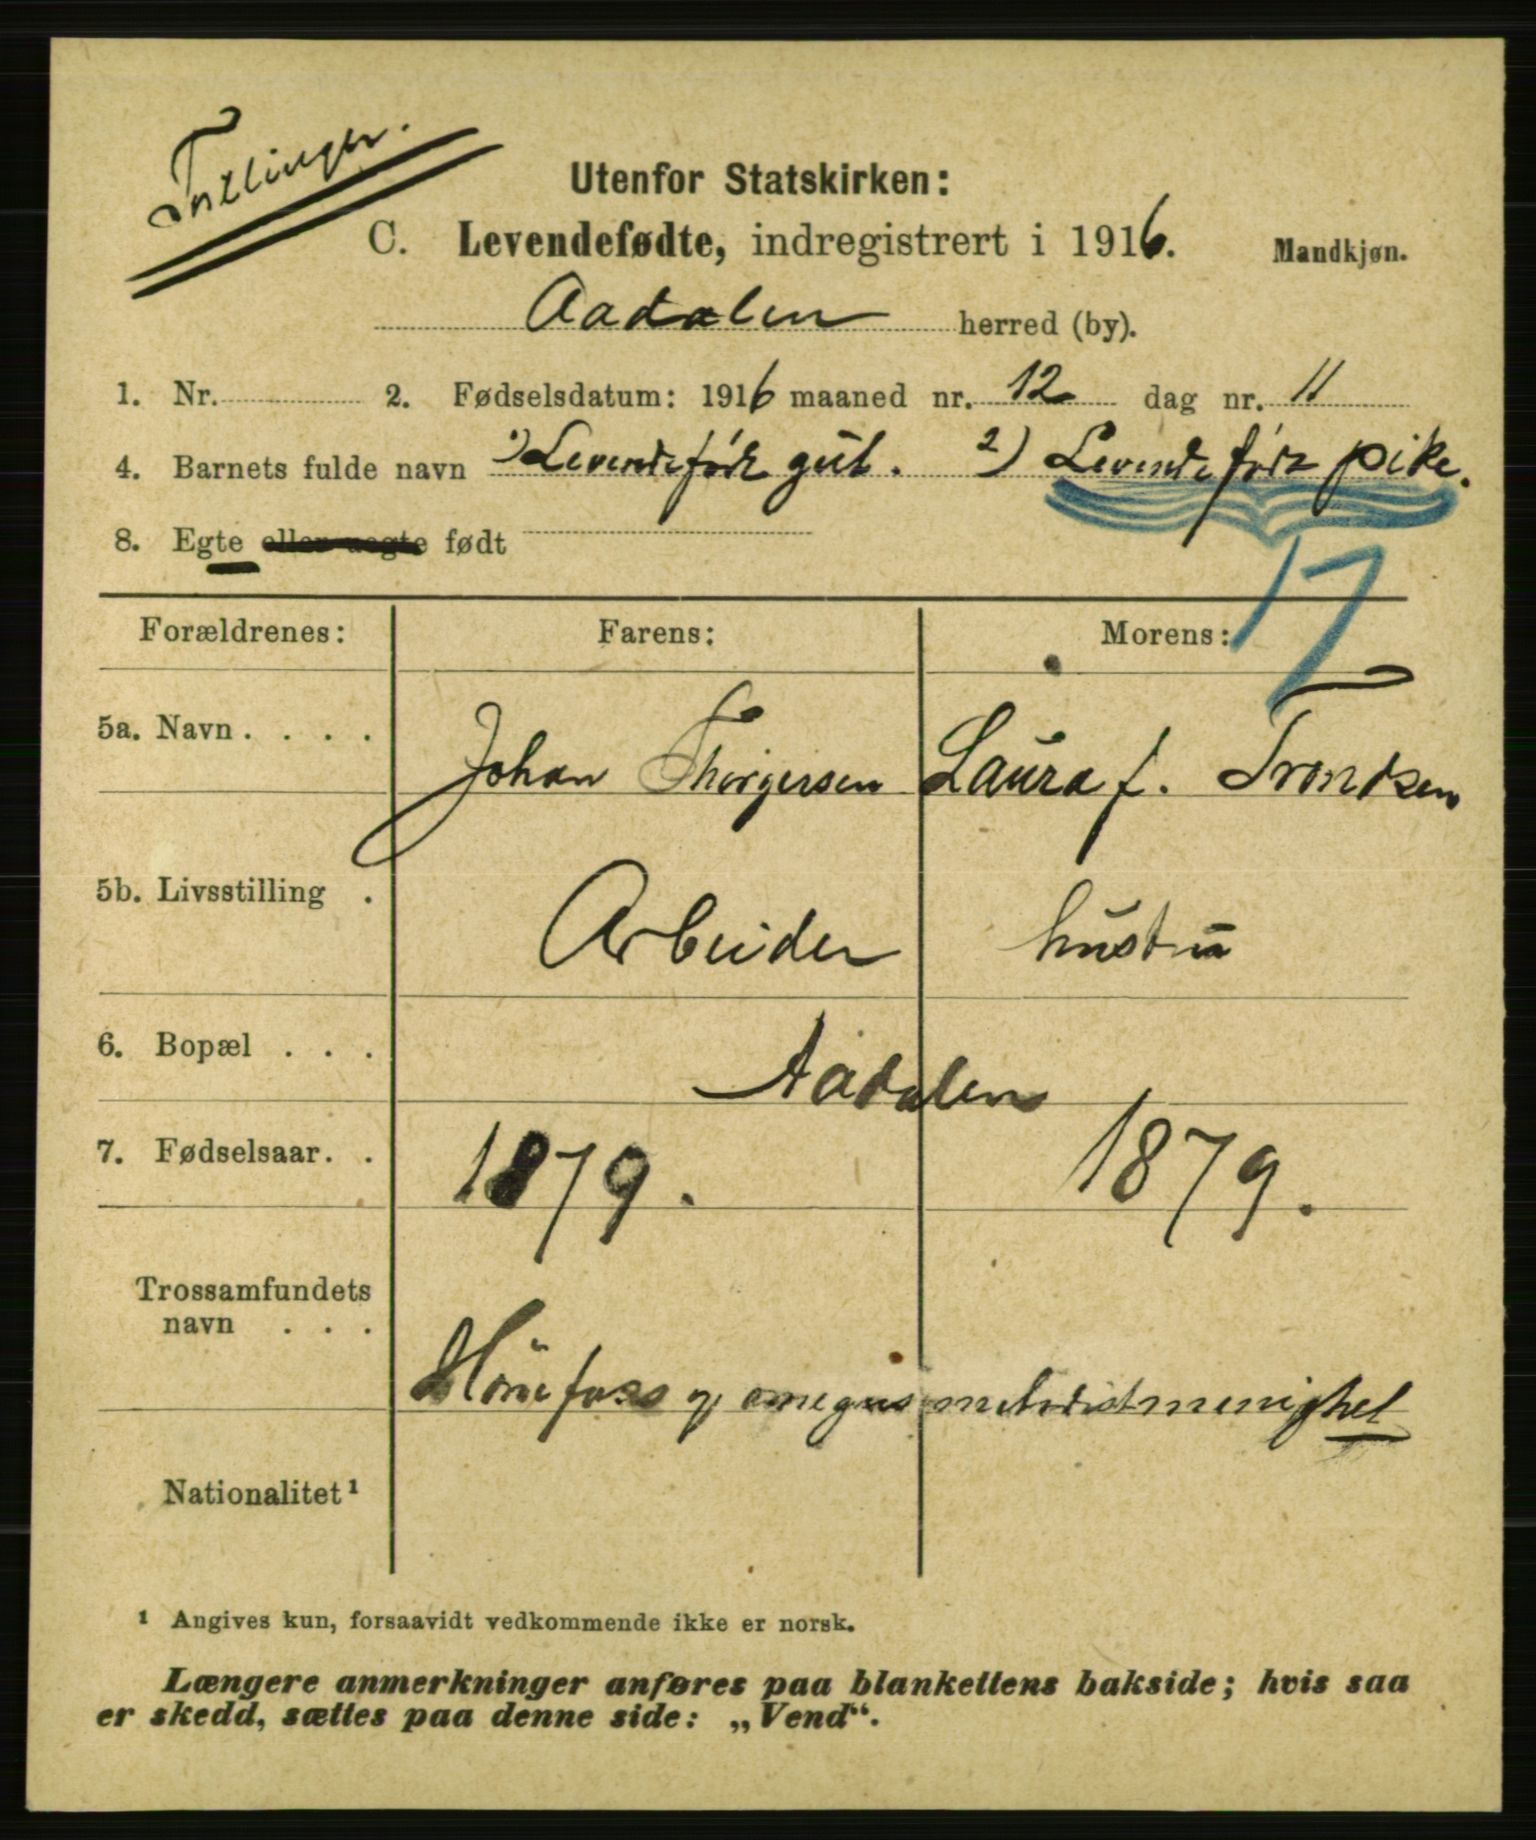 Tvillinger.
Utenfor Statskirken:
C. Levendefødte, indregistrert i 1916. Mandkjøn.
Aadalen herred (by).
1. Nr. 2. Fødselsdatum: 1916 maaned nr. 12 dag nr. 11
4. Barnets fulde navn 1) Levendefødt gut. 2) Levendefødt pike.
8. Egte eller uegte født
17
Forældrenes: Farens: Morens:
5a. Navn . . . . Johan Thorgersen Laura f. Trondsen
5b. Livsstilling . Arbeider hustru
6. Bopæl . . . Aadalen
7. Fødselsaar. . 1879. 1879.
Trossamfundets
navn . . .
Hönefoss og omegns metodistmenighet
Nationalitet¹
¹ Angives kun, forsaavidt vedkommende ikke er norsk.
Længere anmerkninger anføres paa blankettens bakside; hvis saa
er skedd, sættes paa denne side: „Vend“.